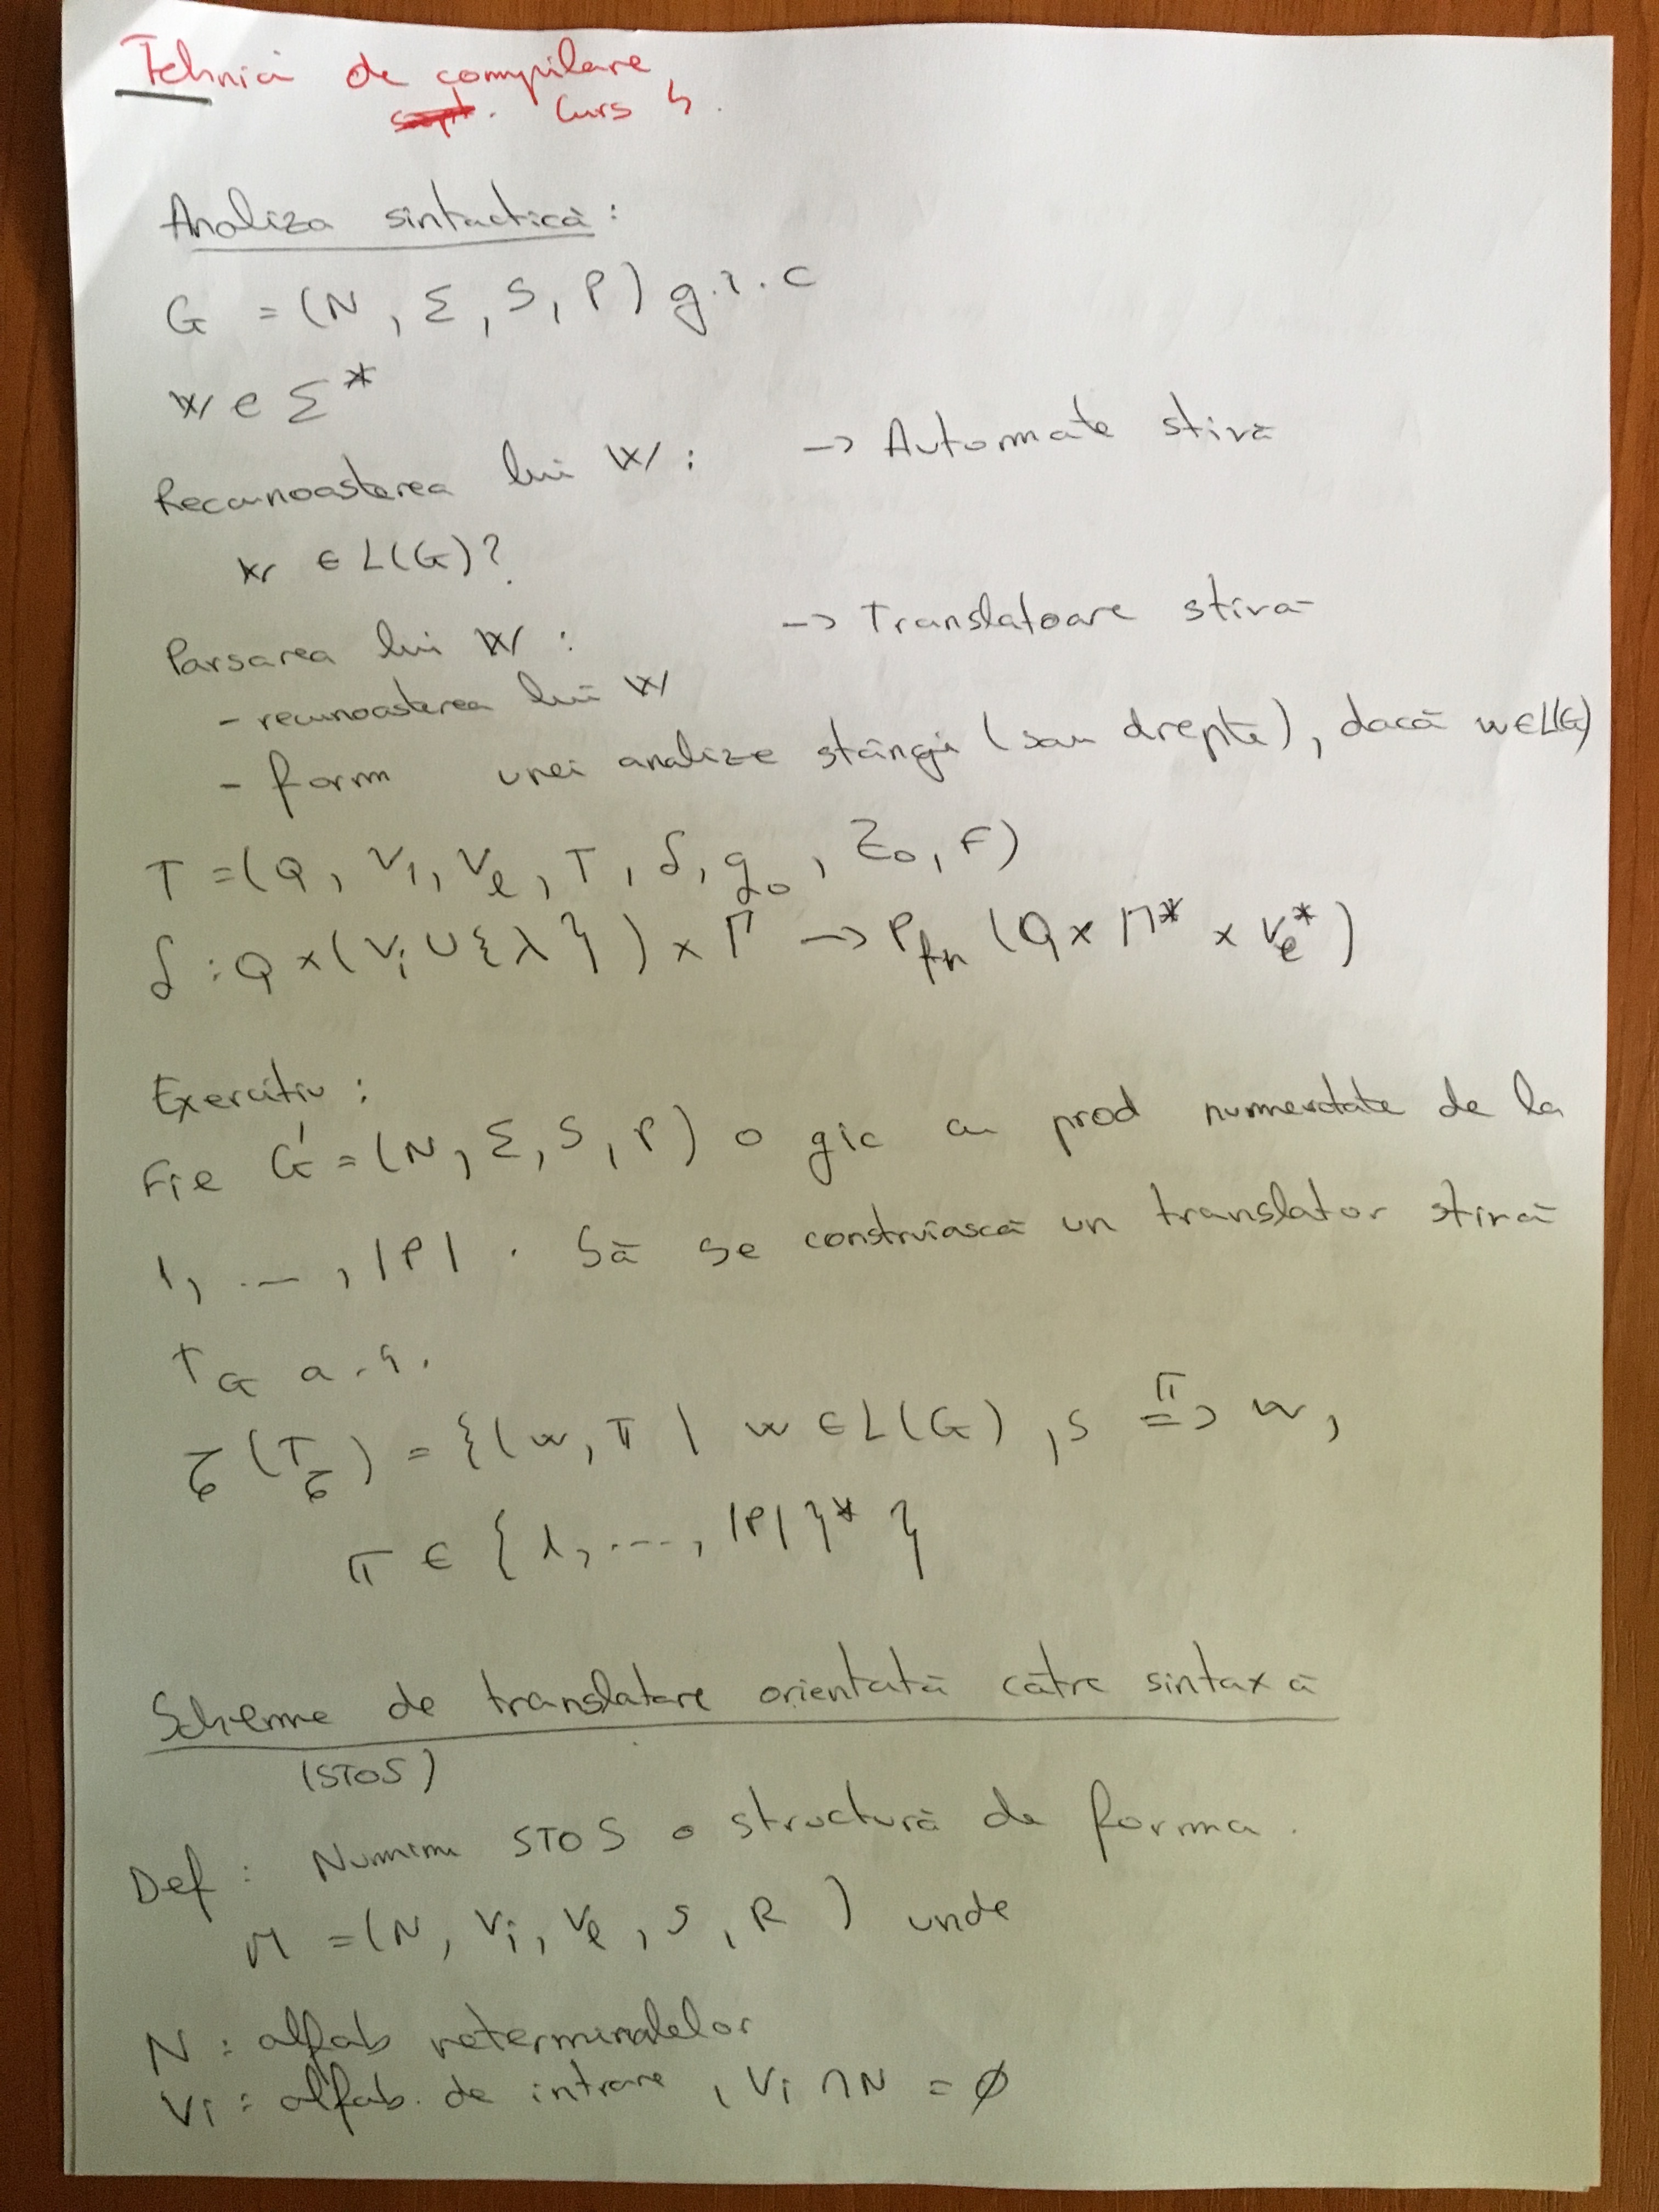 Tehnici de compilare
Curs 4.
Analiza sintactică:
G = (N, Σ, S, P) g.i.c
w ∈ Σ*
Recunoasterea lui w: -> Automate stivă
w ∈ L(G)?
Parsarea lui w: -> Translatoare stivă
- recunoasterea lui w
- form unei analize stângi (sau drepte), dacă w∈L(G)
T = (Q, Vi, Ve, Γ, δ, q0, Z0, F)
δ: Q × (Vi ∪ {λ}) × Γ -> Pfin (Q × Γ* × Ve*)
Exercitiu:
Fie G' = (N, Σ, S, P) o gic cu prod numerotate de la
1, ..., |P|. Să se construiască un translator stivă
TG a.î.
τ(Tτ) = {(w, π | w ∈ L(G), S =π=> w,
π ∈ {1, ..., |P|}* }
Scheme de translatare orientată către sintaxă
(STOS)
Def: Numim STOS o structură de forma.
M = (N, Vi, Ve, S, R) unde
N: alfab neterminalelor
Vi: alfab. de intrare, Vi ∩ N = ∅